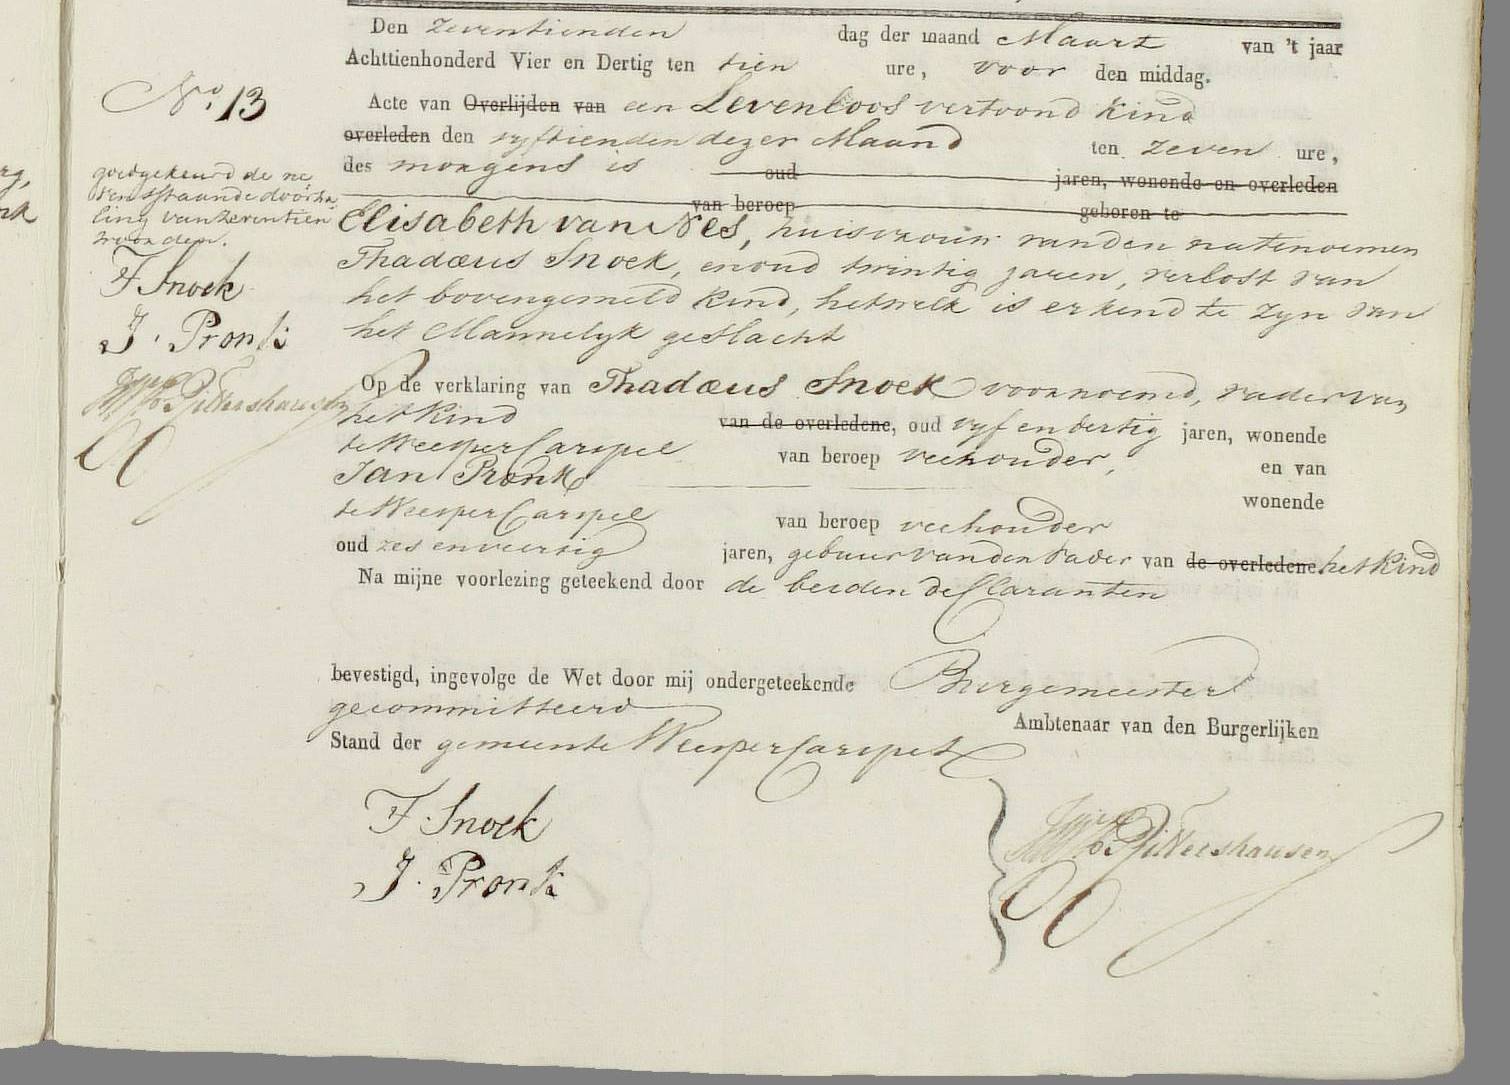 Den zeventienden dag der maand Maart van 't jaar
Achttienhonderd Vier en Dertig ten tien ure, voor den middag.
No. 13
Acte van Overlijden van een Levenloos vertoond kind
overleden den vyftienden dezer Maand ten zeven ure,
des morgens is oud jaren, wonende en overleden
van beroep geboren te
Elisabeth van Nes, huisvrouw van den natenoemen
Thadæus Snoek, en oud twintig jaren, verlost van
het bovengemeld kind, hetwelk is erkend te zyn van
het Mannelyk geslacht
goedgekeurd de ne
venstaande doorha
ling van zeventien
woorden.
F Snoek
J. Pronk
Op de verklaring van Thadæus Snoek voornoemd, vader van
het kind van de overledene, oud vyf en dertig jaren, wonende
te Weesper Carspel van beroep veehouder, en van
Jan Pronk wonende
te Weesper Carspel van beroep veehouder
oud zes en veertig jaren, gebuur van den vader van de overledene het kind
Na mijne voorlezing geteekend door de beiden declaranten
bevestigd, ingevolge de Wet door mij ondergeteekende Burgemeester
gecommitteerd Ambtenaar van den Burgerlijken
Stand der gemeente Weesper Carspel
F. Snoek
J. Pronk